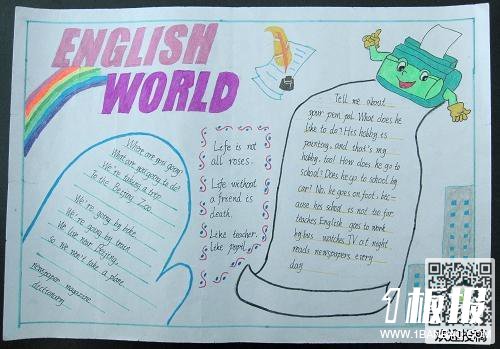 ENGLISH
WORLD
Where are you going?
What are you going to do?
We're taking a trip
To the Beijing Zoo
We're going by bike
We're going by train
We live near Beijing,
So we won't take a plane
newspaper magazine
dictionary
Life is not
all roses.
Life without
a friend is
death.
Like teacher,
like pupil.
Tell me about
your pen pal. What does he
like to do? His hobby is
painting, and that's my
hobby, too! How does he go to
school? Does he go to school by
car? No, he goes on foot, bec-
ause his school is not too far.
teaches English goes to work
by bus watches TV at night
reads newspapers every
day
1板报
WWW.1BANBAO.COM
欢迎投稿